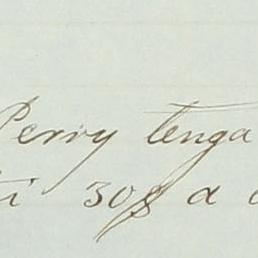 Perry tenga
30$ a